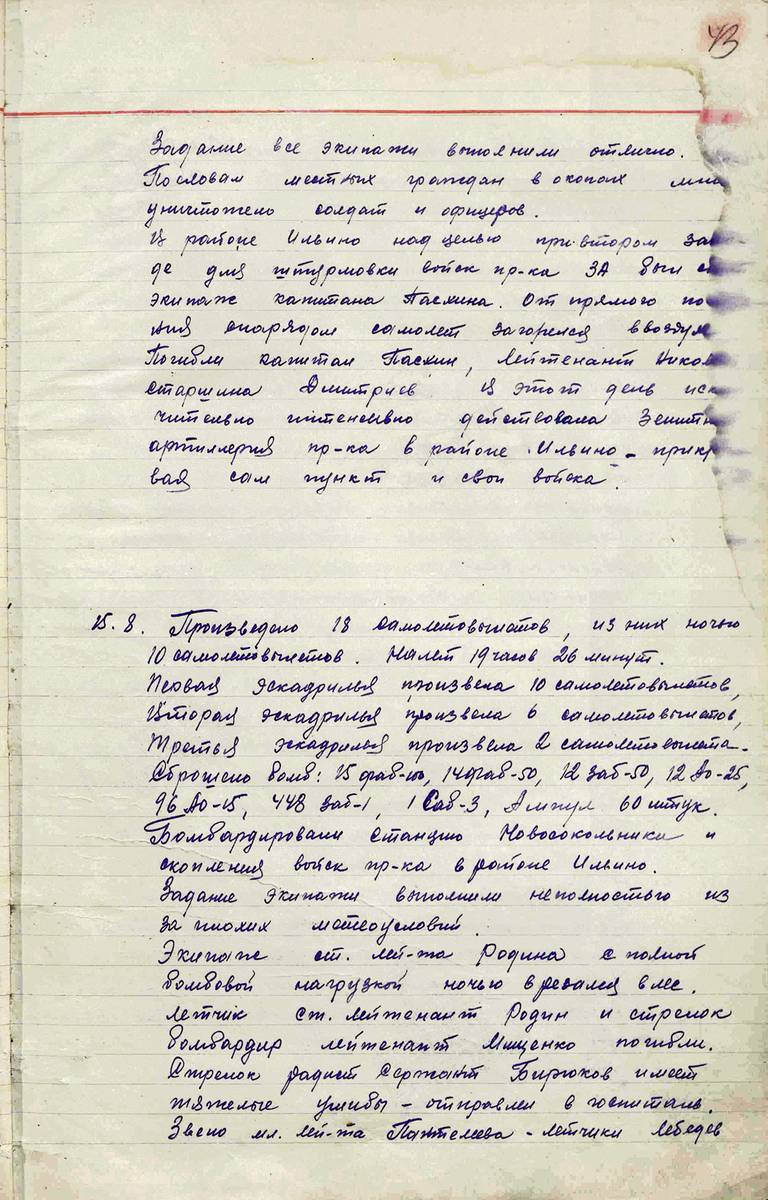 43
Задание все экипажи выполнили отлично.
Пословам местных граждан в окопах мно
уничтожено солдат и офицеров.
В районе Ильино над целью при втором захо
де для штурмовки войск пр-ка ЗА был с
экипаж капитана Пасхина. От прямого по
ния снарядом самолет загорелся в воздухе
Погибли капитан Пасхин, лейтенант Никол
старшина Дмитриев. В этот день иск
чительно интенсивно действовала Зенитн
артиллерия пр-ка в районе Ильино - прикр
вая сам пункт и свои войска.
15.8. Произведено 18 самолетовылетов, из них ночью
10 самолетовылетов. Налет 19 часов 26 минут.
Первая эскадрилья произвела 10 самолетовылетов,
Вторая эскадрилья произвела 6 самолетовылетов,
Третья эскадрилья произвела 2 самолетовылета.
Сброшено бомб: 15 фаб-100, 14 фаб-50, 12 заб-50, 12 Ао-25,
96 Ао-15, 448 заб-1, 1 Саб-3, Ампул 60 штук.
Бомбардировали станцию Новосокольники и
скопления войск пр-ка в районе Ильино.
Задание экипажи выполнили неполностью из
за плохих метеоусловий.
Экипаж ст. лей-та Родина с полной
бомбовой нагрузкой ночью врезался в лес.
летчик ст. лейтенант Родин и стрелок
бомбардир лейтенант Мищенко погибли.
Стрелок радист Сержант Бирюков имеет
тяжелые ушибы - отправлен в госпиталь.
Звено мл. лей-та Пантелеева - летчики Лебедев